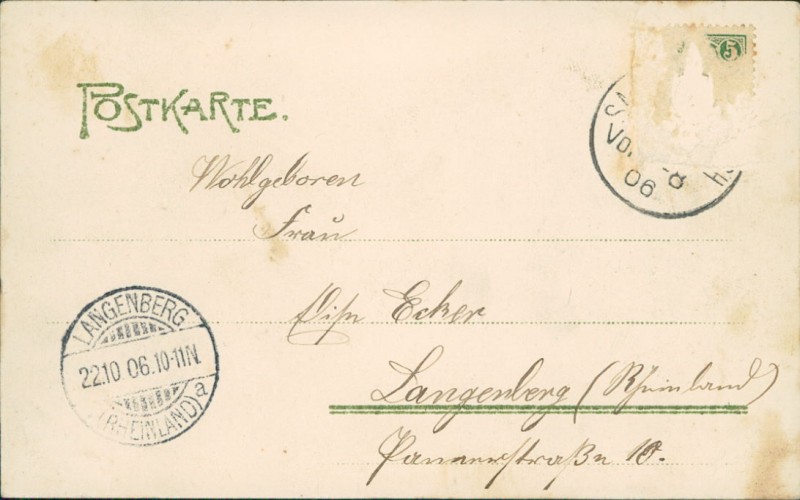 5
POSTKARTE.
Vor
06
Wohlgeboren
Frau
Ecker
Langenberg (Rheinland)
Pannerstraße 10.
LANGENBERG
22.10 06.10-11N.
(RHEINLAND) a